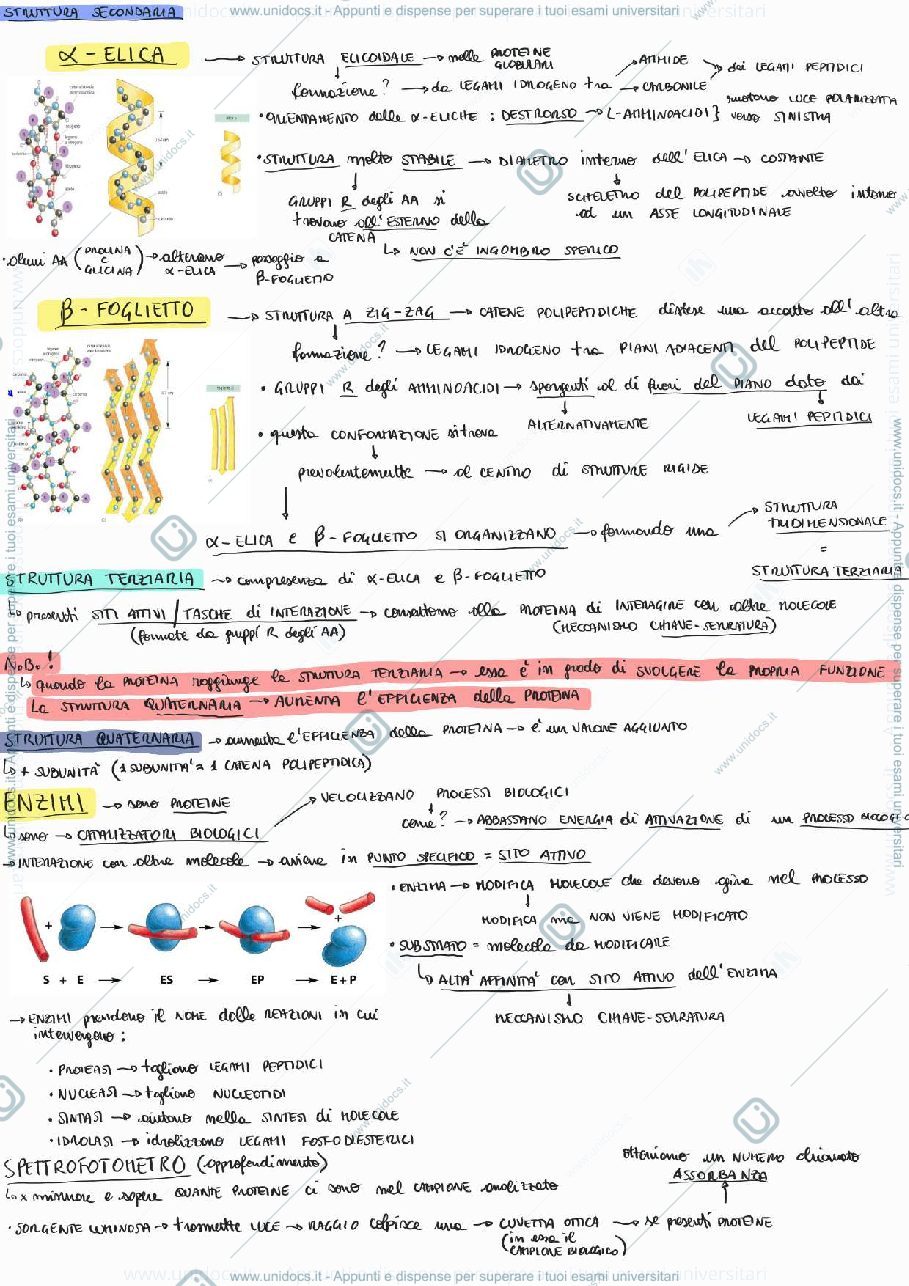 www.unidocs.it - Appunti e dispense per superare i tuoi esami universitari
STRUTTURA SECONDARIA
α - ELICA → STRUTTURA ELICOIDALE → nelle PROTEINE GLOBULARI
formazione? → da LEGAMI IDROGENO tra → AMMIDE → CARBONILE dei LEGAMI PEPTIDICI
• ORIENTAMENTO delle α-ELICHE : DESTRORSO → L-AMMINOACIDI} ruotano LUCE POLARIZZATA verso SINISTRA
• STRUTTURA molto STABILE → DIAMETRO interno dell'ELICA → COSTANTE
GRUPPI R degli AA si trovano all'ESTERNO della CATENA
SCHELETRO del POLIPEPTIDE avvolto intorno ad un ASSE LONGITUDINALE
↳ NON C'È INGOMBRO STERICO
• alcuni AA (PROLINA e GLICINA) → alterano α-ELICA → passaggio a β-FOGLIETTO
β - FOGLIETTO → STRUTTURA A ZIG-ZAG → CATENE POLIPEPTIDICHE distese una accanto all'altra
formazione? → LEGAMI IDROGENO tra PIANI ADIACENTI del POLIPEPTIDE
• GRUPPI R degli AMMINOACIDI → sporgenti al di fuori del PIANO dato dai
ALTERNATIVAMENTE
LEGAMI PEPTIDICI
• questa CONFORMAZIONE si trova
prevalentemente → al CENTRO di STRUTTURE RIGIDE
α-ELICA E β-FOGLIETTO SI ORGANIZZANO → formando una STRUTTURA TRIDIMENSIONALE
=
STRUTTURA TERZIARIA
STRUTTURA TERZIARIA → compresenza di α-ELICA e β-FOGLIETTO
↳ presenti SITI ATTIVI / TASCHE di INTERAZIONE → consentono alla PROTEINA di INTERAGIRE con altre MOLECOLE
(formate da gruppi R degli AA) (MECCANISMO CHIAVE-SERRATURA)
N.B.!
↳ quando la PROTEINA raggiunge la STRUTTURA TERZIARIA → essa è in grado di SVOLGERE la PROPRIA FUNZIONE
La STRUTTURA QUATERNARIA → AUMENTA l'EFFICIENZA della PROTEINA
STRUTTURA QUATERNARIA → aumenta l'EFFICENZA della PROTEINA → È un VALORE AGGIUNTO
↳ + SUBUNITA' (1 SUBUNITA' = 1 CATENA POLIPEPTIDICA)
ENZIMI → sono PROTEINE
↳ sono → CATALIZZATORI BIOLOGICI → VELOCIZZANO PROCESSI BIOLOGICI
come? → ABBASSANO ENERGIA di ATTIVAZIONE di un PROCESSO BIOLOGICO
→ INTERAZIONE con altre molecole → avviene in PUNTO SPECIFICO = SITO ATTIVO
• ENZIMA → MODIFICA MOLECOLE che devono agire nel PROCESSO
MODIFICA ma NON VIENE MODIFICATO
• SUBSTRATO = molecola da MODIFICARE
↳ ALTA' AFFINITA' con SITO ATTIVO dell'ENZIMA
MECCANISMO CHIAVE-SERRATURA
S + E → ES → EP → E + P
→ ENZIMI prendono il NOME dalle REAZIONI in cui
intervengono :
• PROTEASI → tagliano LEGAMI PEPTIDICI
• NUCLEASI → tagliano NUCLEOTIDI
• SINTASI → aiutano nella SINTESI di MOLECOLE
• IDROLASI → idrolizzano LEGAMI FOSFODIESTERICI
SPETTROFOTOMETRO (approfondimento)
↳ x misurare e sapere QUANTE PROTEINE ci sono nel CAMPIONE analizzato
otteniamo un NUMERO chiamato
ASSORBANZA
• SORGENTE LUMINOSA → trasmette LUCE → RAGGIO colpisce una → CUVETTA OTTICA → se presenti PROTEINE
(in essa il CAMPIONE BIOLOGICO)
www.unidocs.it - Appunti e dispense per superare i tuoi esami universitari